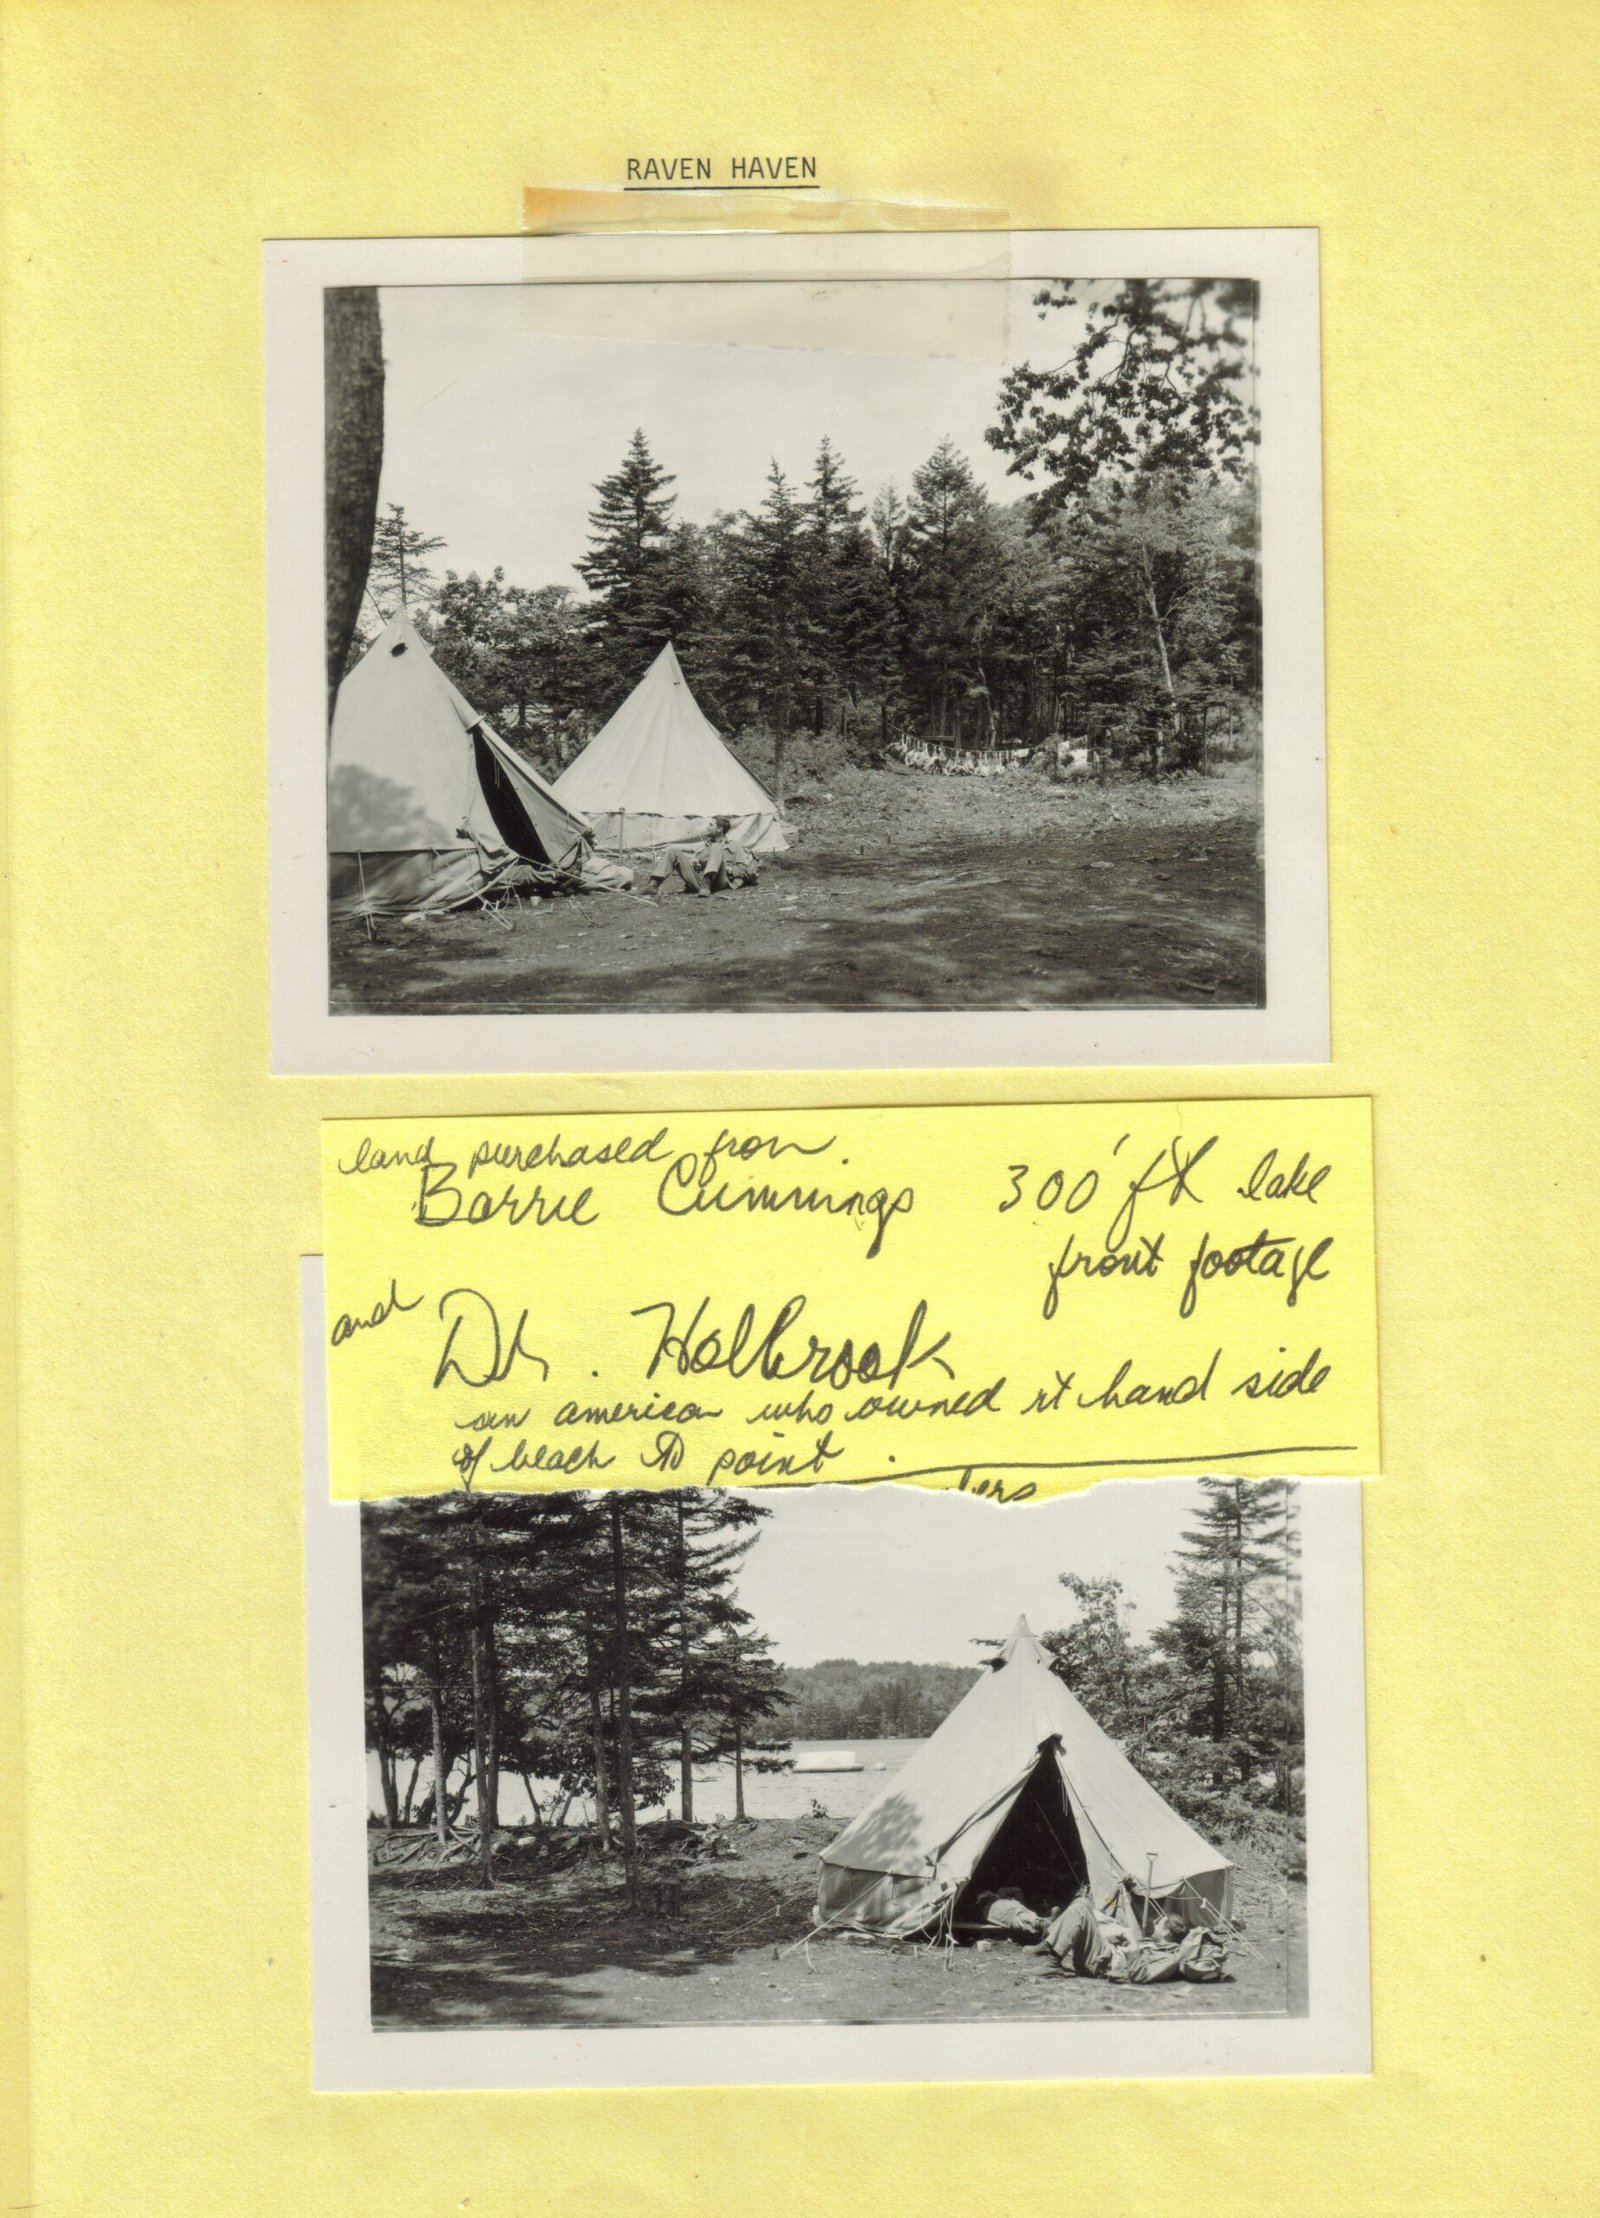 RAVEN HAVEN
land purchased from
Barrie Cummings 300' ft lake
front footage
and Dr. Holbrook
an american who owned rt hand side
of beach to point.